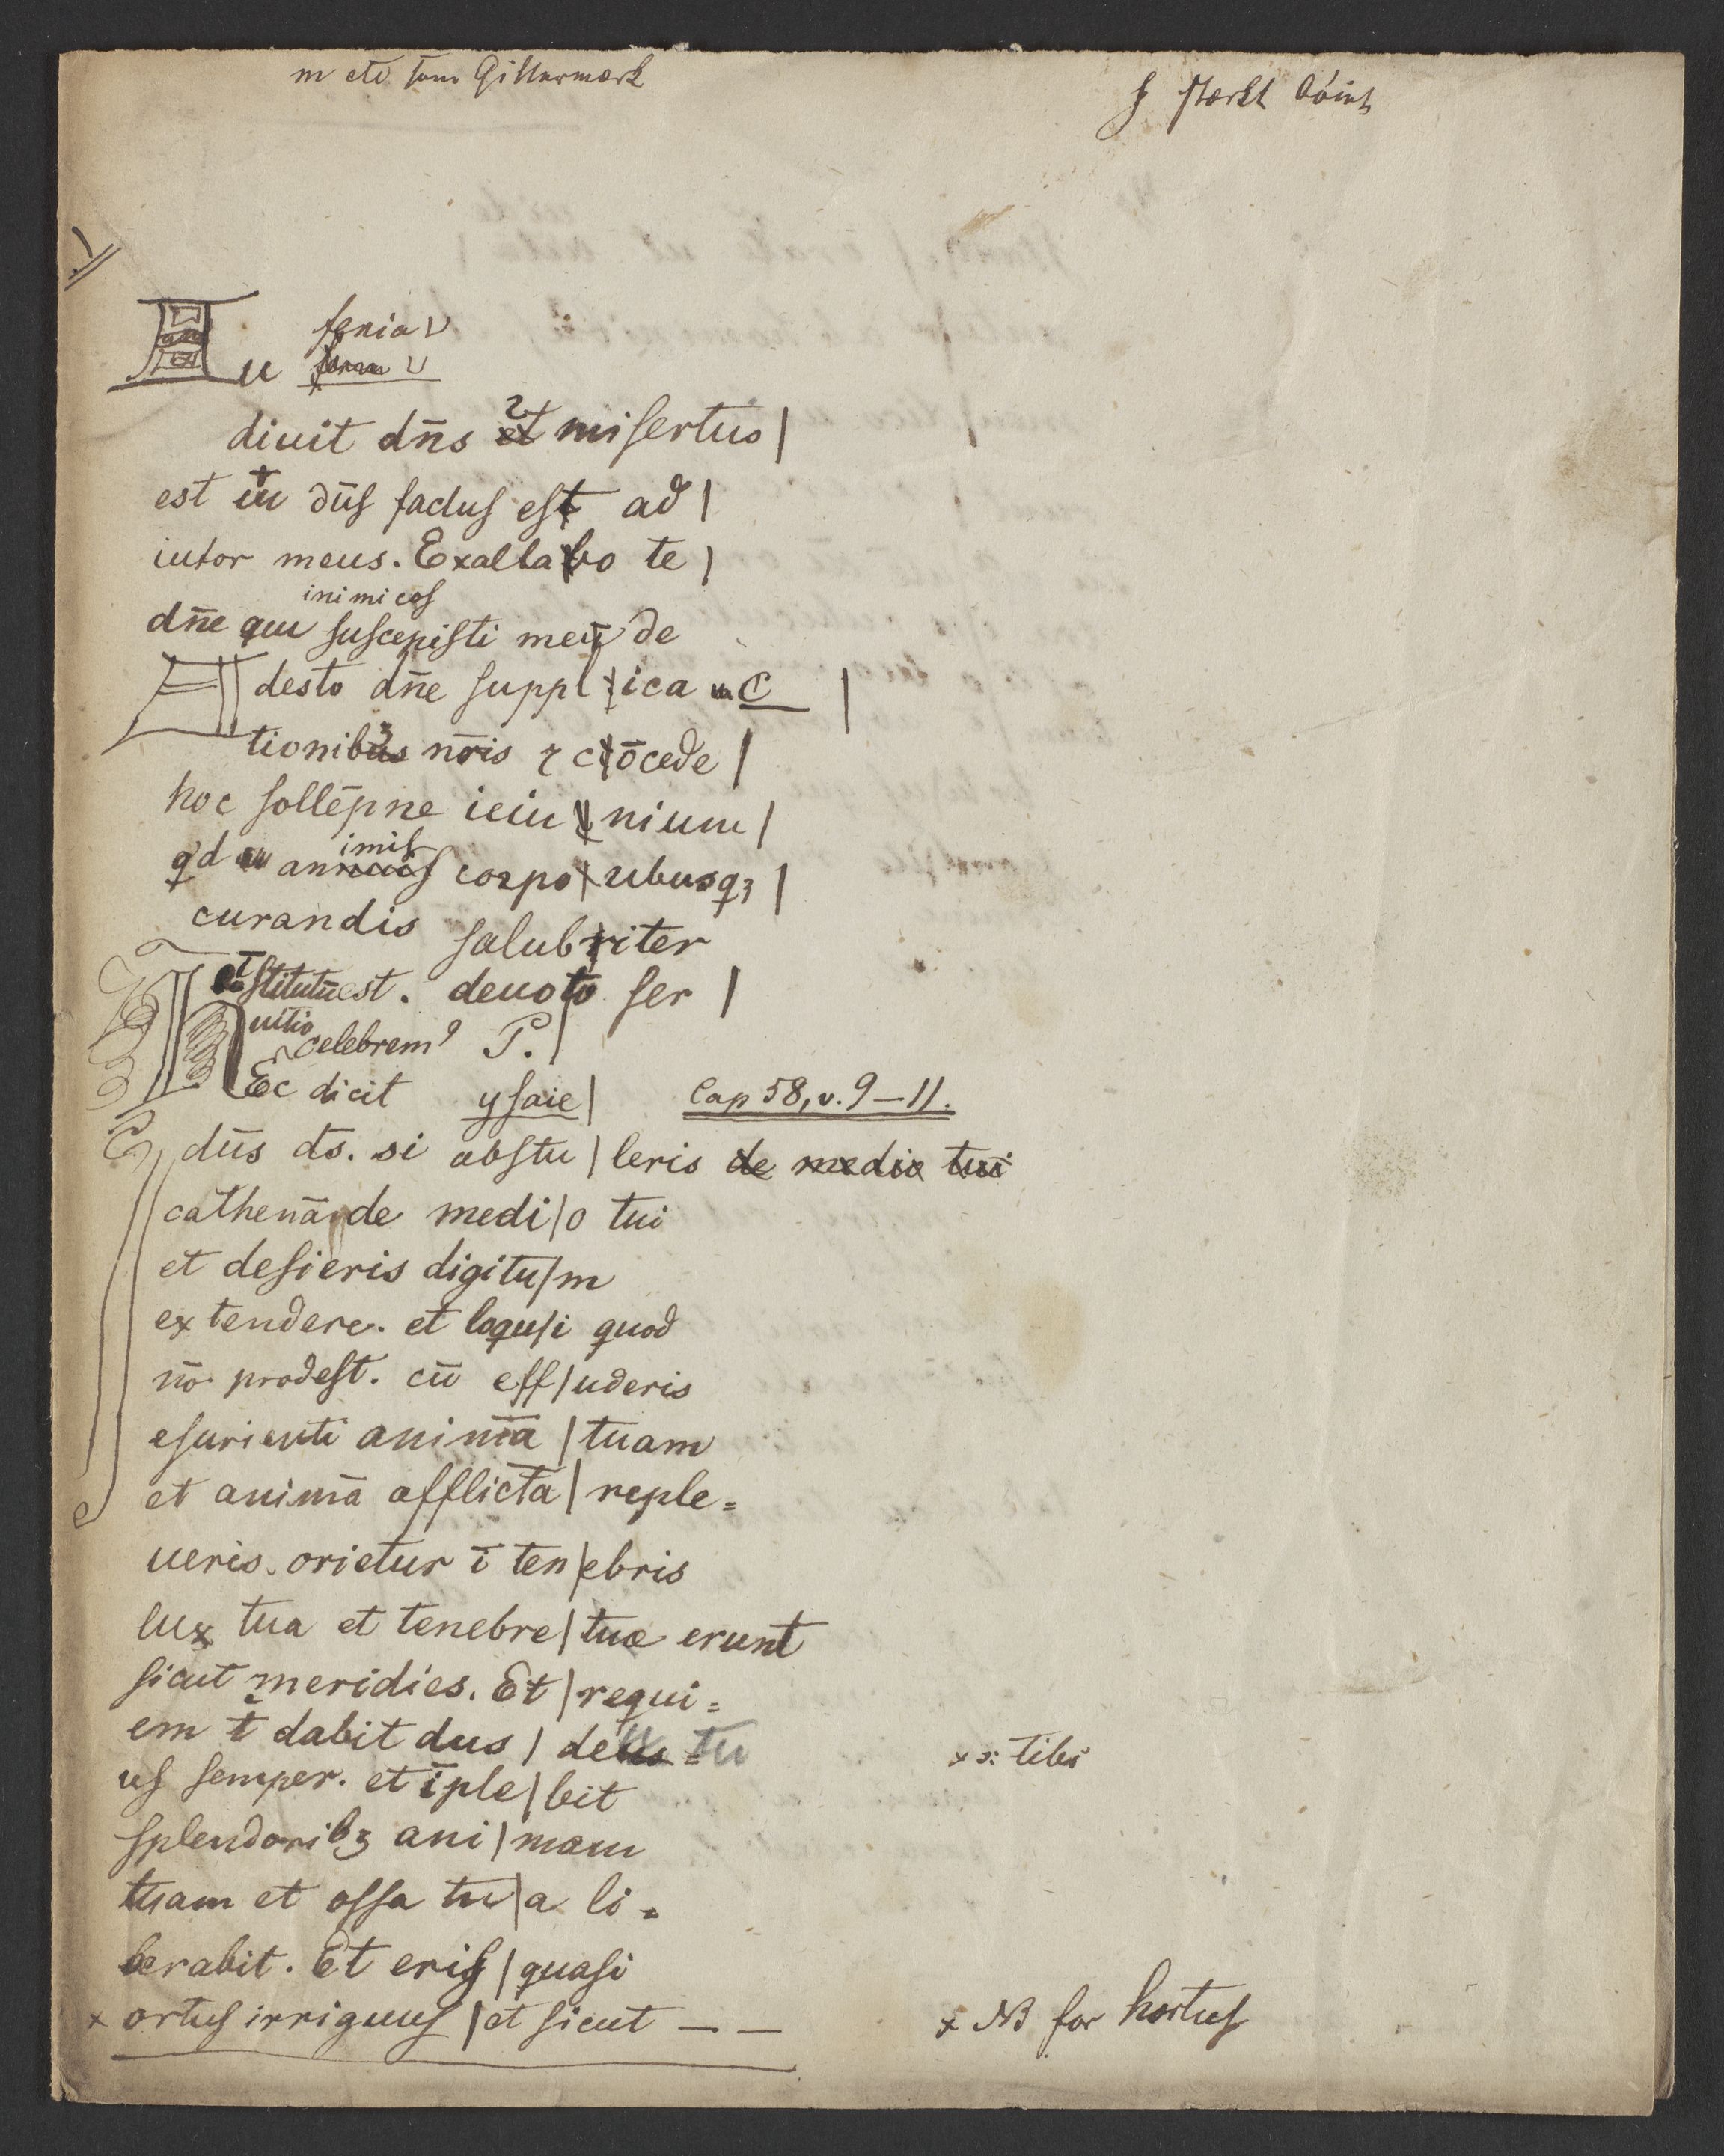 feria V
u
diuit dn̄s et misertus |
est m dn̄s factus est ad |
iutor meus. Exaltabo te |
inimicos
dn̄e qm suscepisti me de
desto dn̄e suppl ica C |
tionibus nr̄is ⁊ c ōcede |
hoc sollēpne ieiu nium |
imis
qd animis corpo ribusqꝫ |
curandis salubriter
īstitutū est. deuoto ser |
uitio
celebrem⁹ P.
Ec dicit ysaie | Cap 58, v. 9–11.
dn̄s ds̄. si abstu | leris de medio tui
cathenā de medi | o tui
et desieris digitu | m
extendere. et loqu | i quod
nō prodest. cū eff | uderis
esurienti animā | tuam
et animā afflictā | reple=
ueris. orietur ī ten | ebris
lux tua et tenebre | tue erunt
sicut meridies. Et | requi=
em t dabit dns | deus tu
us semper. et īple | bit
splendoribꝫ ani | mam
tuam et ossa tu | a li=
berabit. Et eris | quasi
x ortus irriguus | et sicut — —
x ɔ: tibi
x NB for hortus